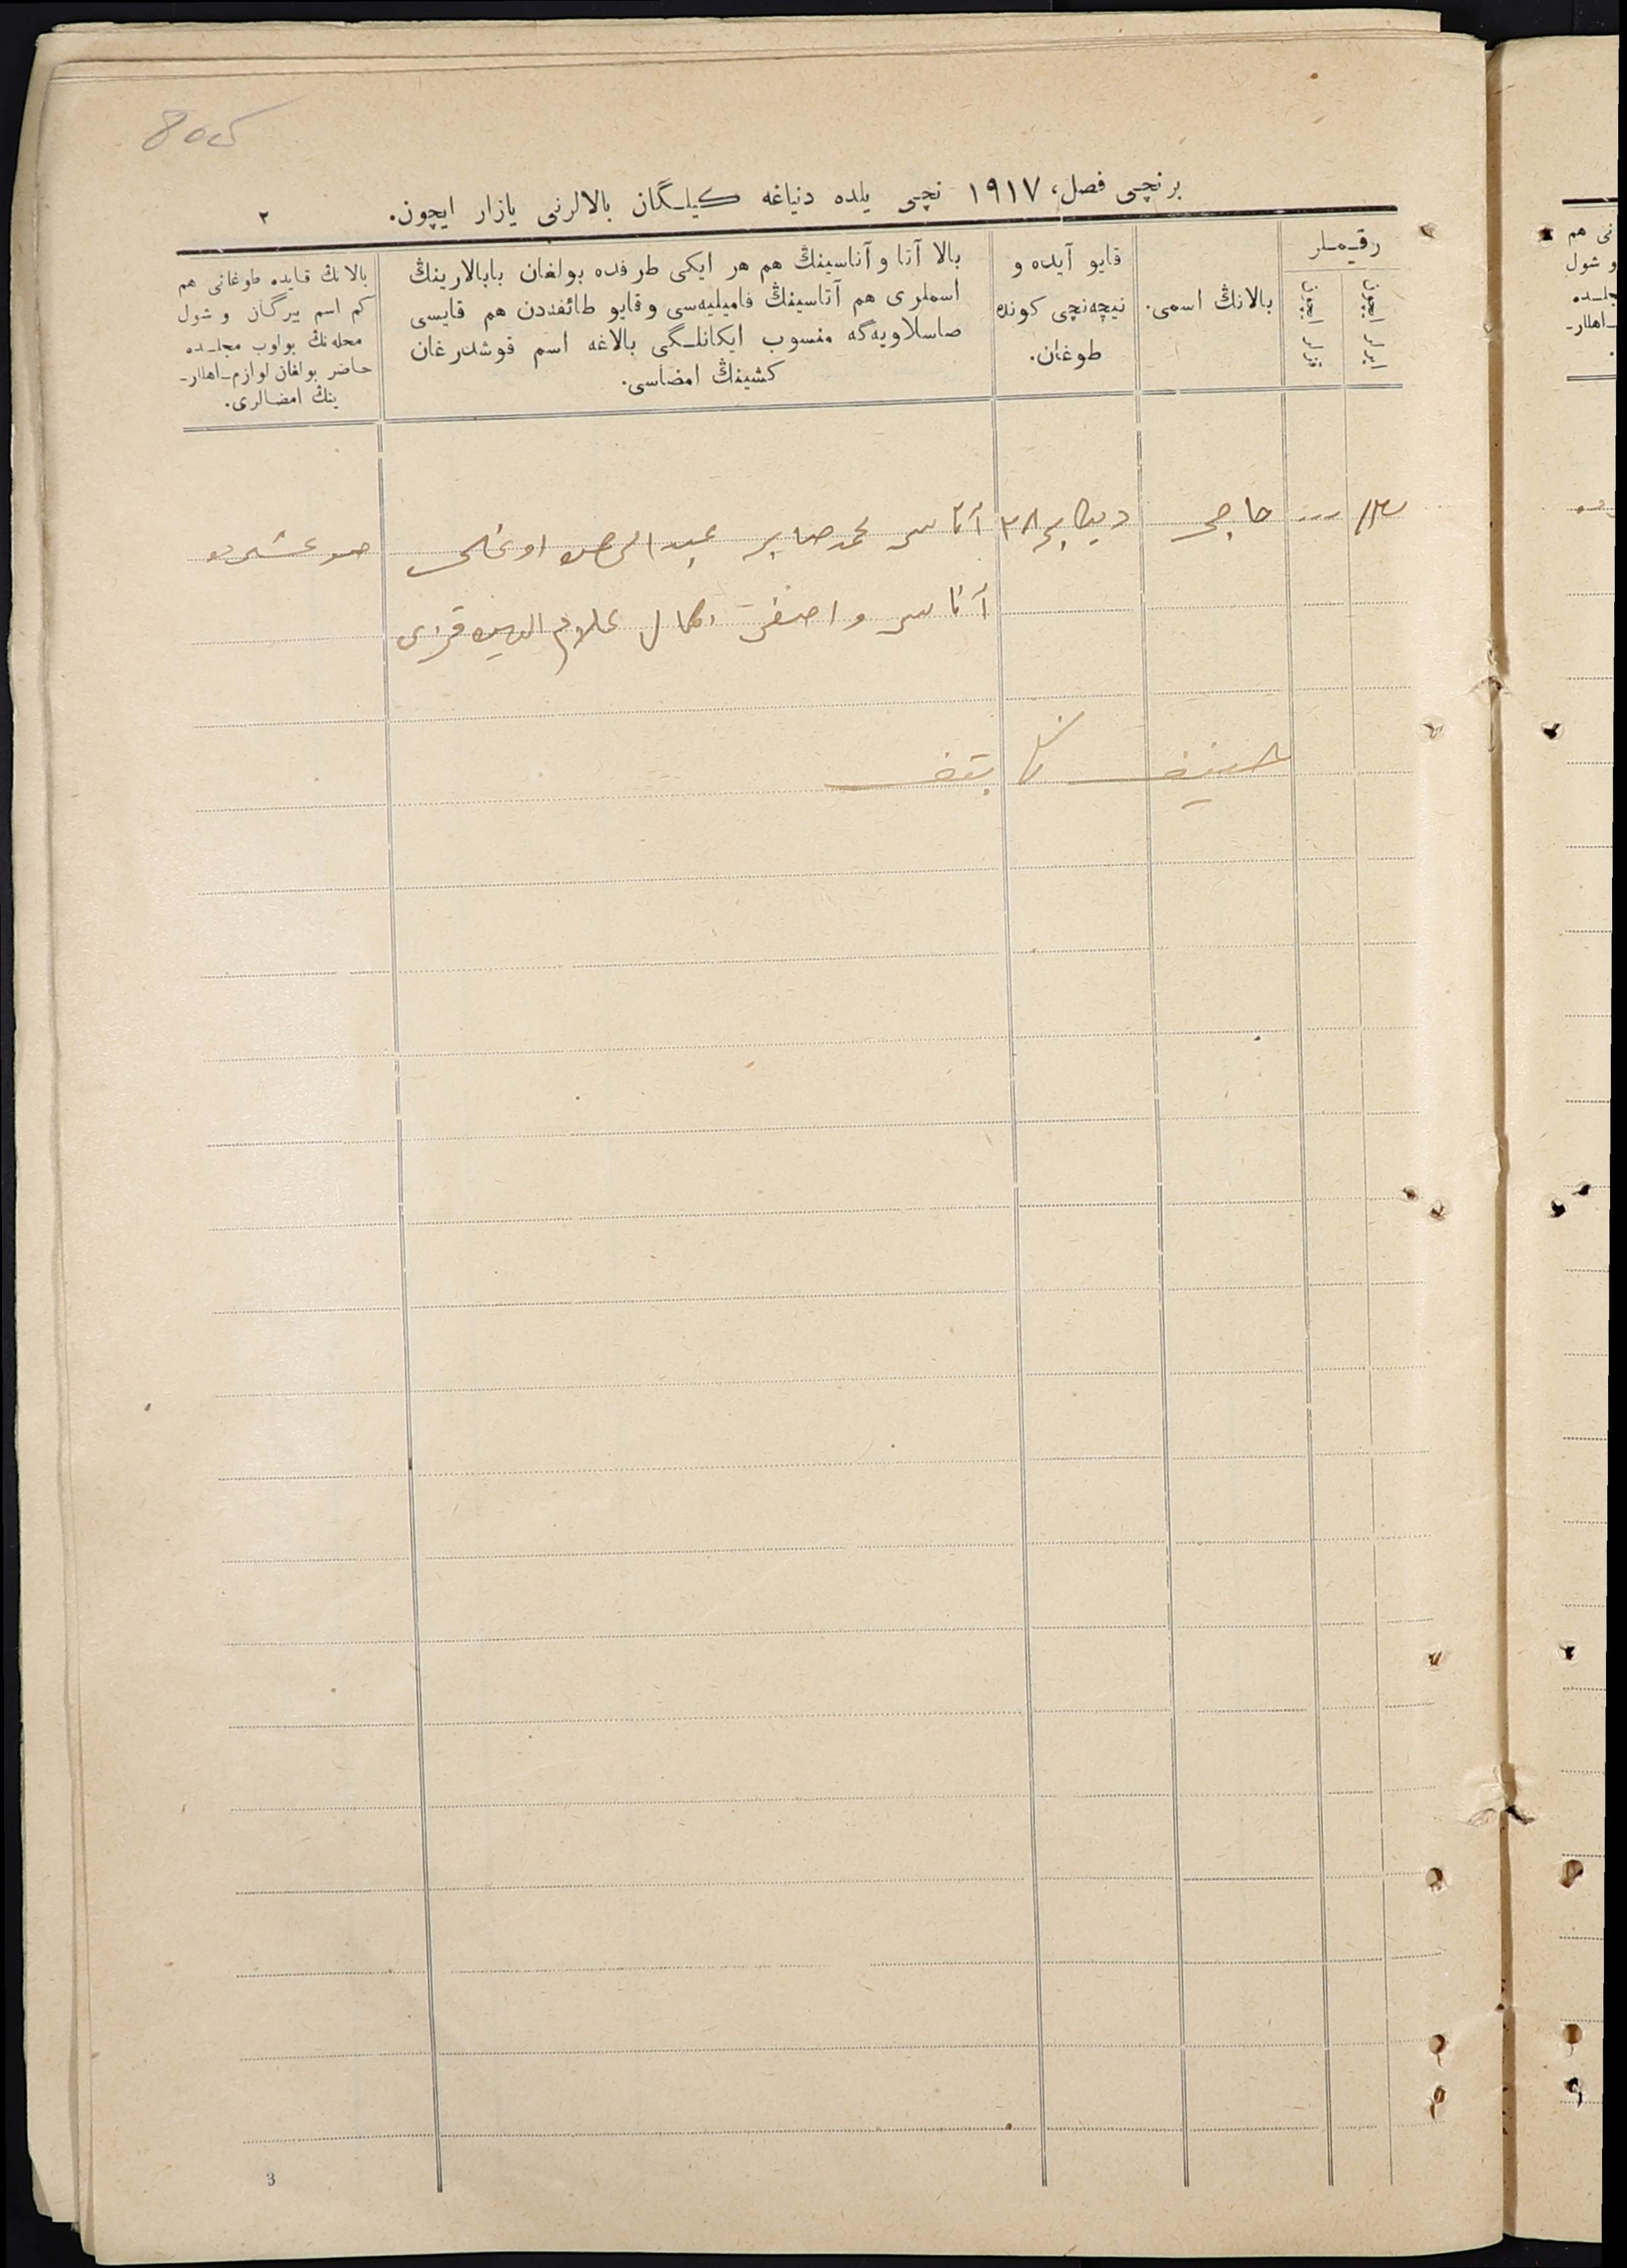 برنچی فصل، ١٩١٧ نچی یلده دنیاغه کیلـگان بالالرنی یازار ایچون. ٢
رقیملر
ایرلر ایچون
قزلر ایچون
بالانڭ اسمی.
قایو آیده و
نیچه‌نچی کونده
طوغان.
بالا آتا و آناسینڭ هم هر ایکی طرفده بولغان بابالارینڭ
اسملری هم آتاسینڭ فامیلیه‌سی وقایو طائفه‌دن هم قایسی
صاسلاویه‌گه منسوب ایکانلـگی بالاغه اسم قوشدرغان
کشینڭ امضاسی.
بالانڭ قایده طوغانی هم
کم اسم بیرگان و شول
محله‌نڭ بولوب مجلـده
حاضر بولغان لوازم-اهللر-
ینڭ امضالری.
حاجی
دیکابر ٢٨
آتاسی محمد صابر عبد الرحمن اوغلی
آناسی کمال علاء الدین قزی
3